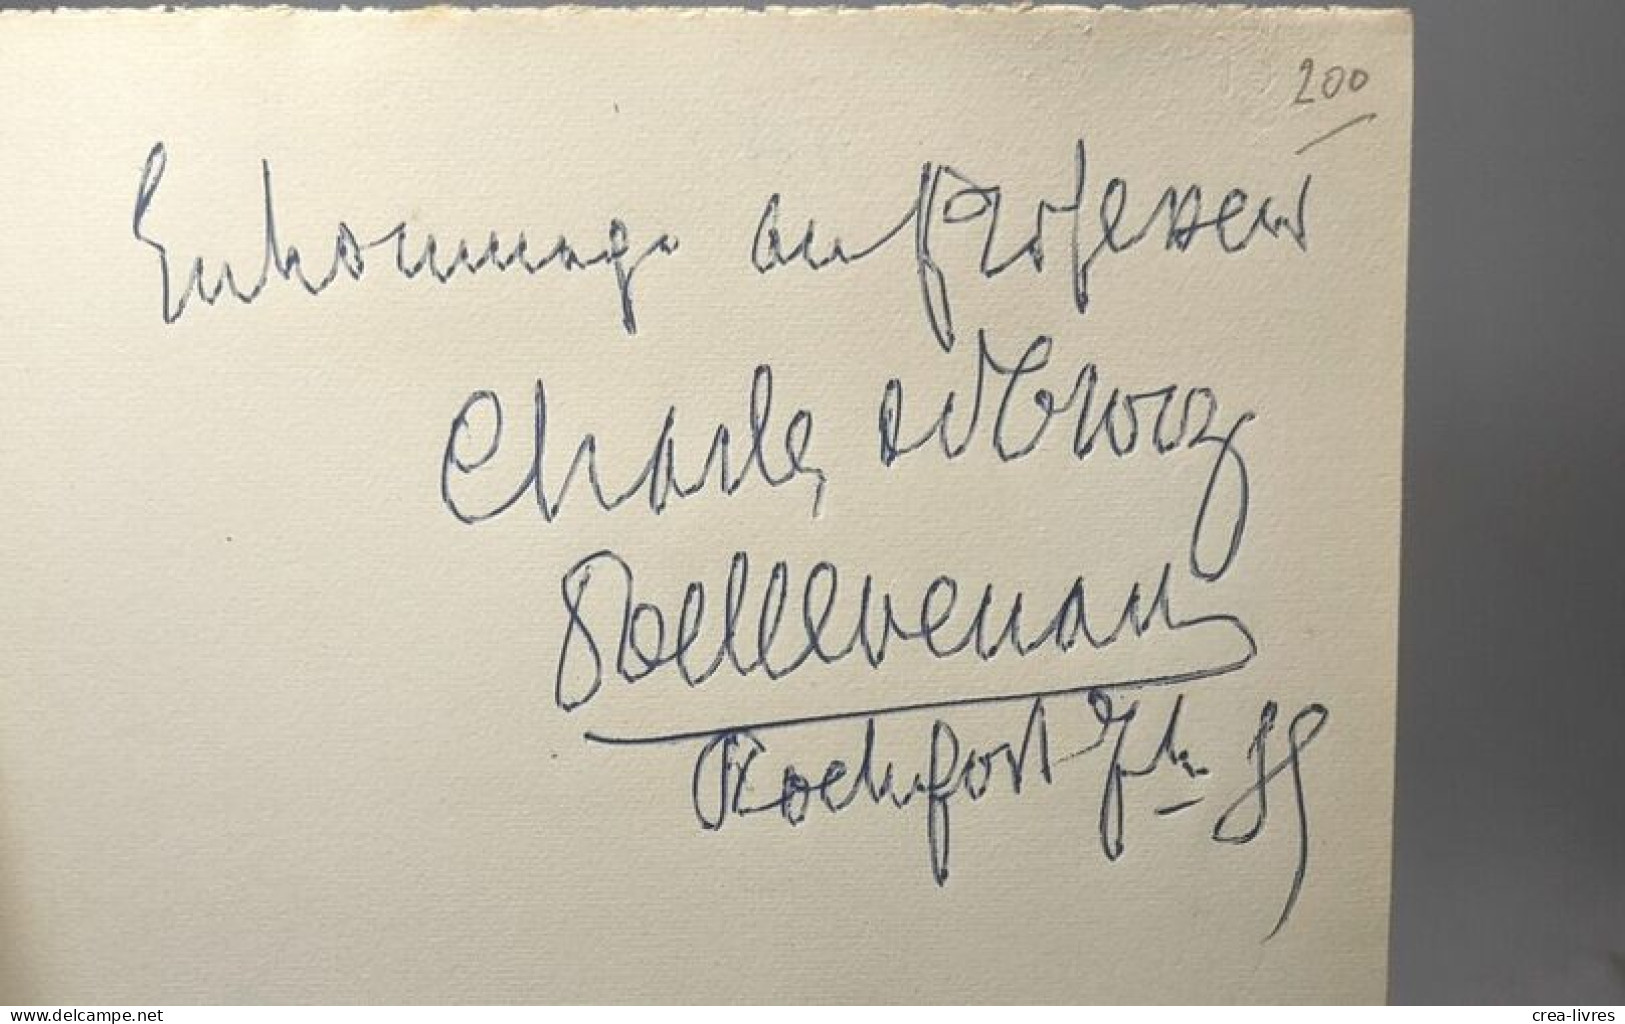 200
En hommage au professeur
Charles
Bellevenan
Rochefort 7b 59
delcampe.net
crea-livres